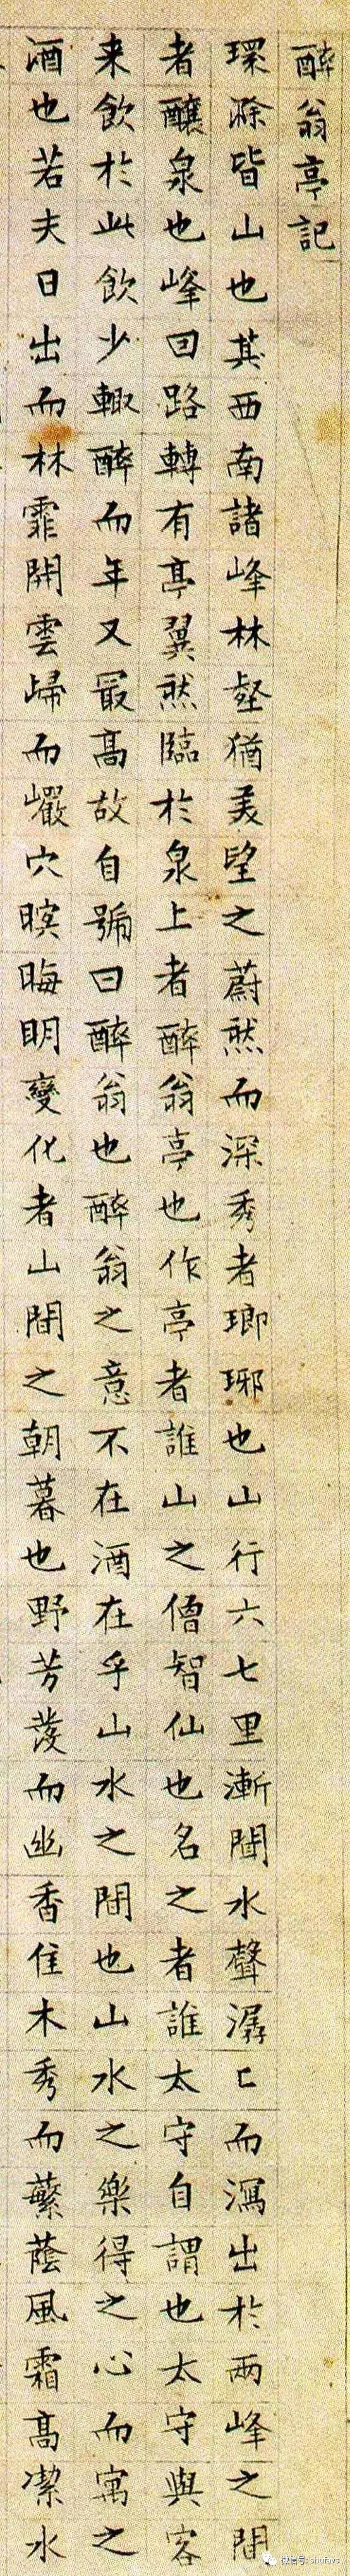 醉翁亭記
環滁皆山也其西南諸峰林壑猶美望之蔚然而深秀者瑯琊也山行六七里漸聞水聲潺〻而瀉出於兩峰之間
者釀泉也峰回路轉有亭翼然臨於泉上者醉翁亭也作亭者誰山之僧智仙也名之者誰太守自謂也太守與客
来飲於此飲少輒醉而年又最高故自號曰醉翁也醉翁之意不在酒在乎山水之間也山水之樂得之心而寓之
酒也若夫日出而林霏開雲歸而巖穴暝晦明變化者山間之朝暮也野芳發而幽香佳木秀而繁蔭風霜高潔水
微信号: shufavs